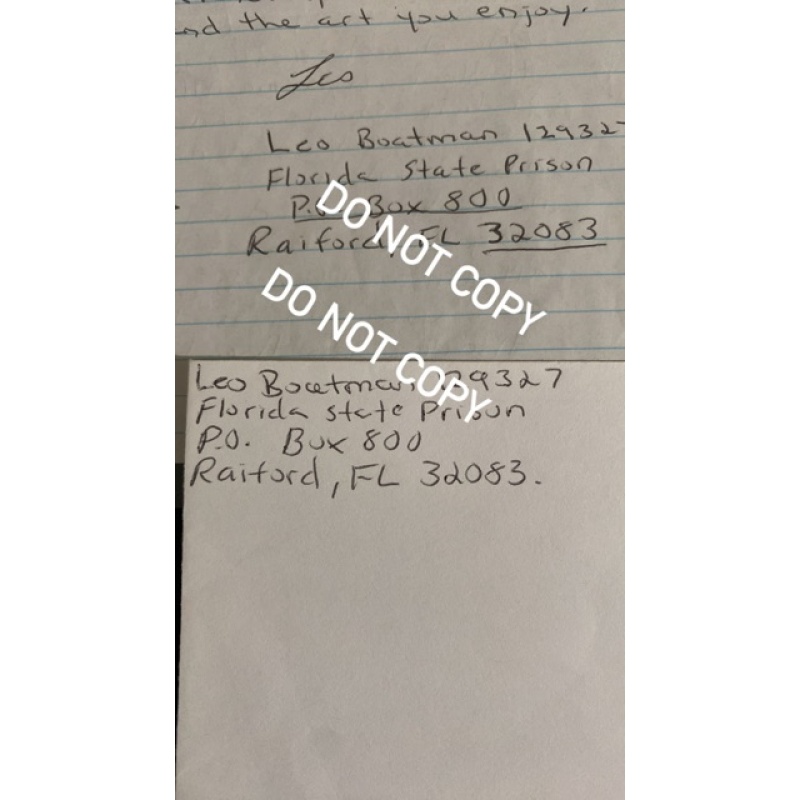 nd the art you enjoy.
Leo
Leo Boatman 129327
Florida State Prison
P.O. Box 800
Raiford, FL 32083
DO NOT COPY
DO NOT COPY
Leo Boatman 129327
Florida state Prison
P.O. Box 800
Raiford, FL 32083.